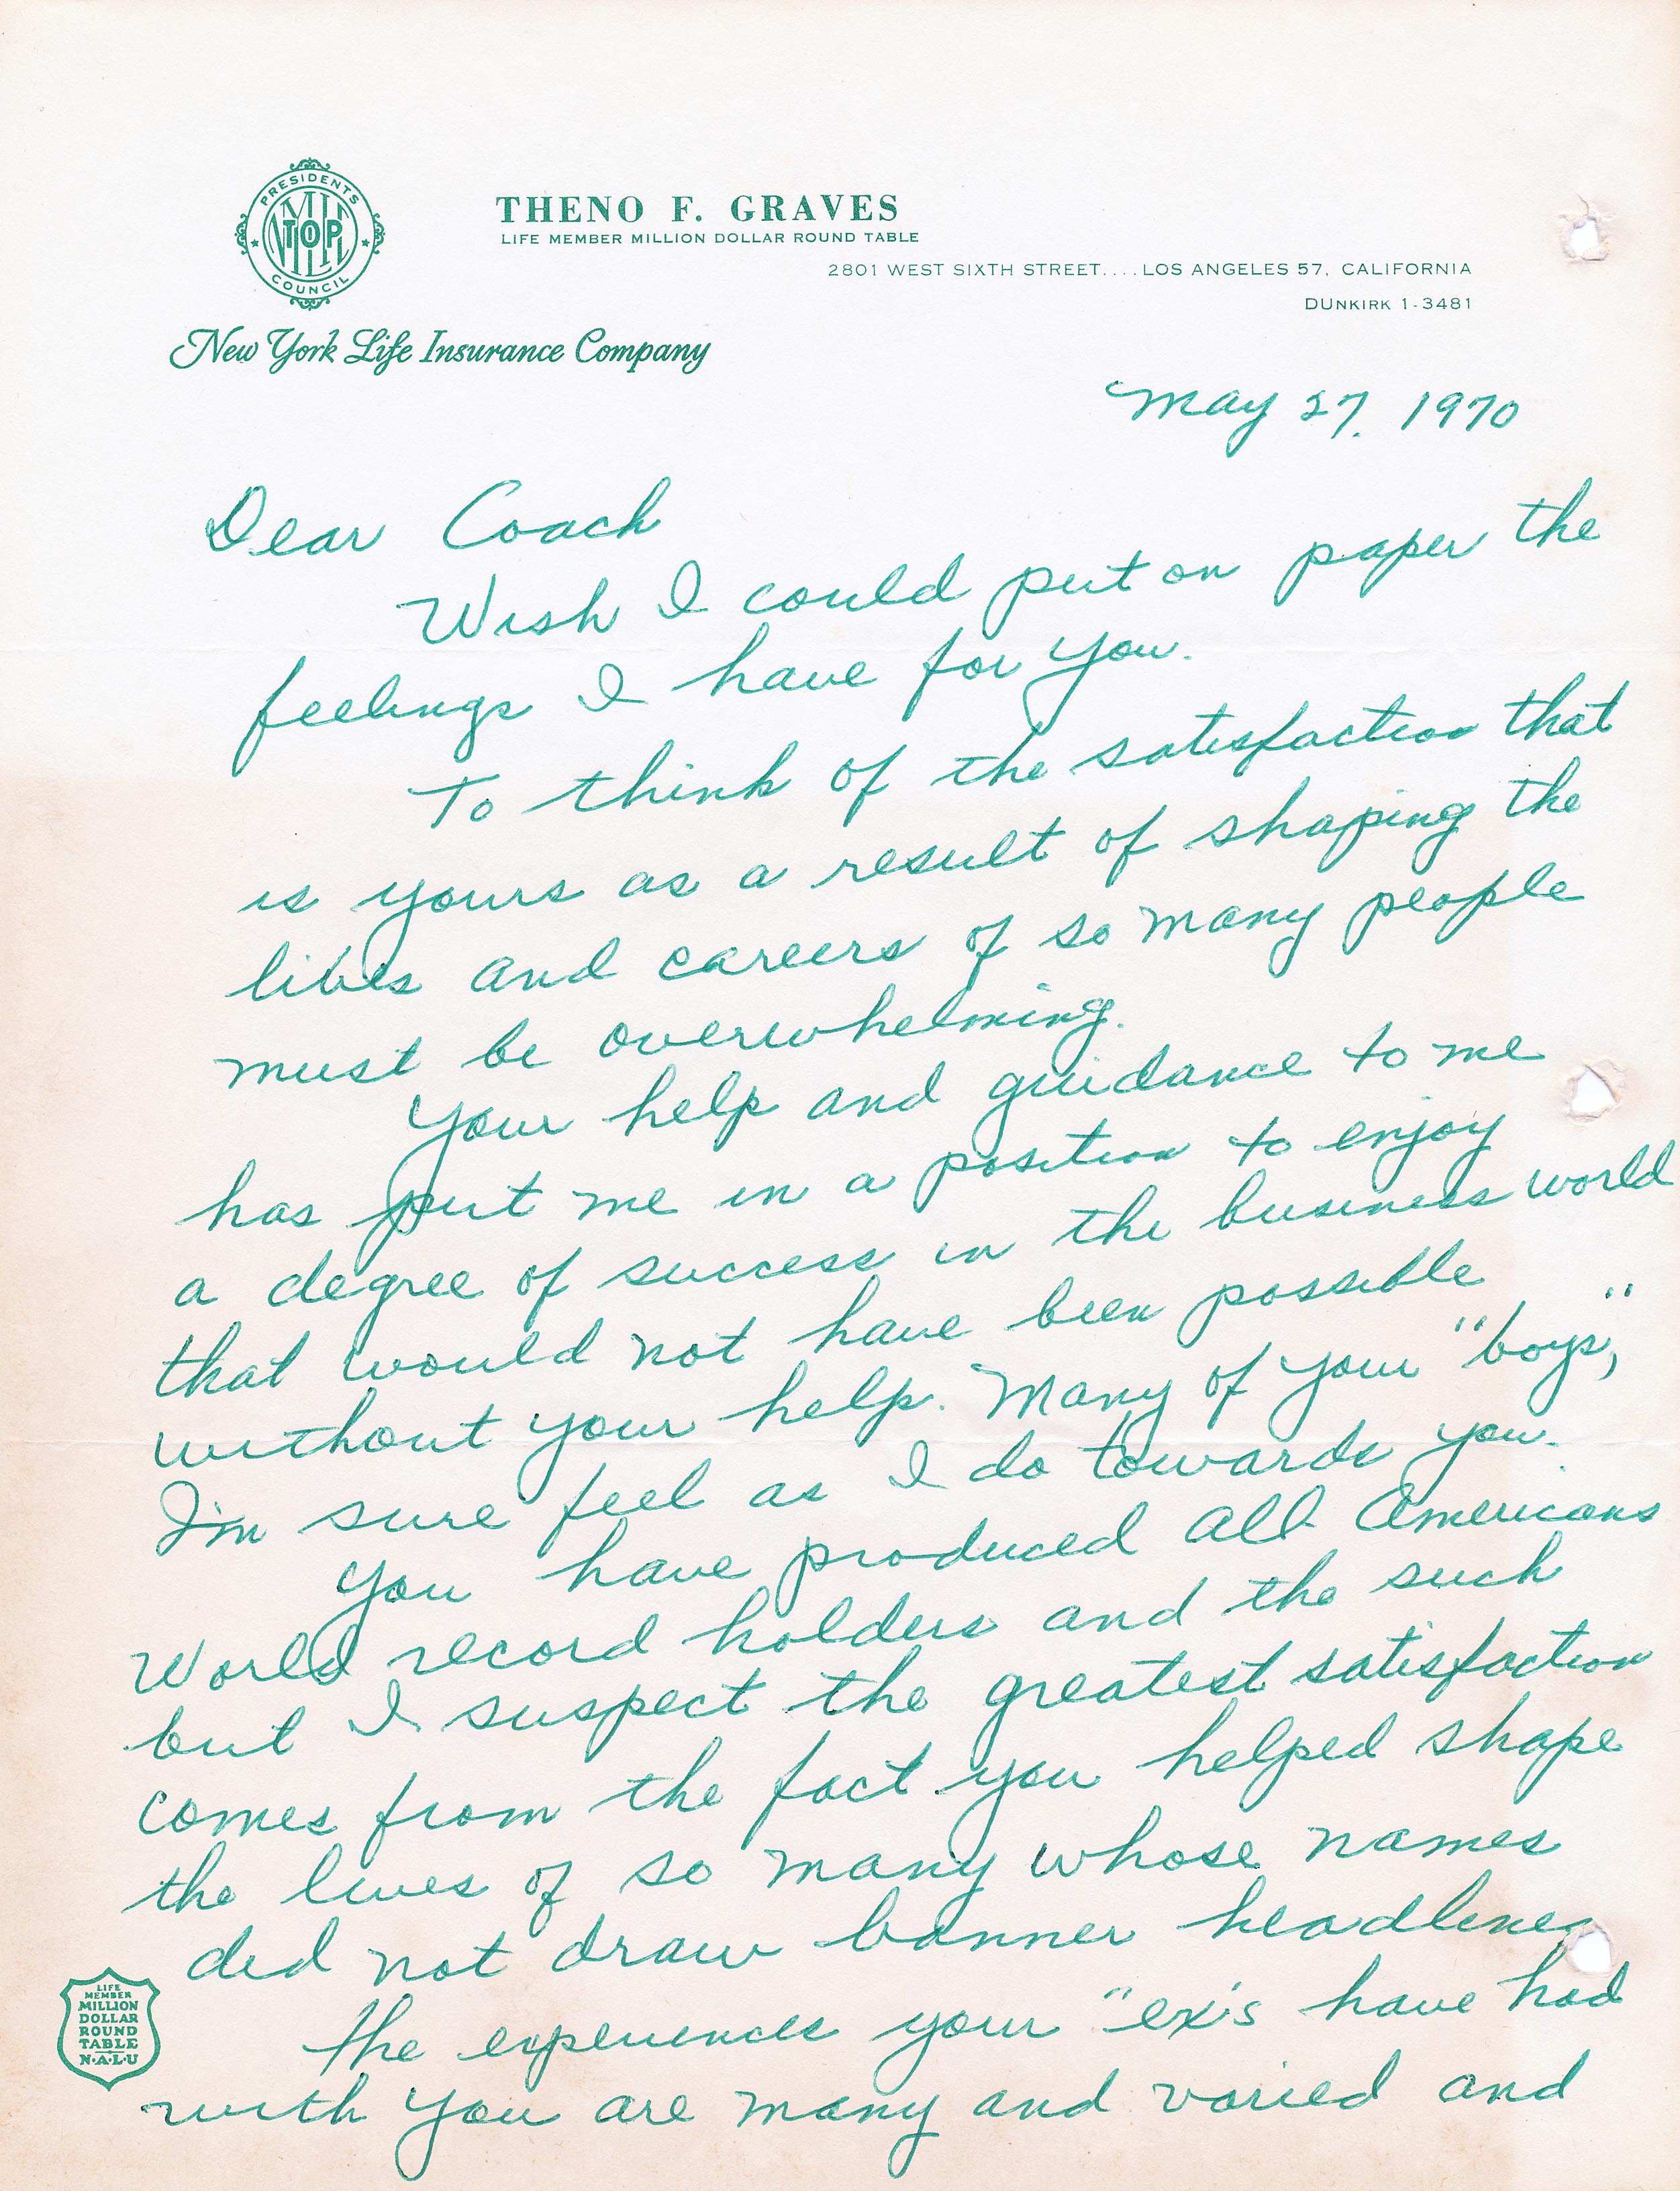 PRESIDENTS
TOP
COUNCIL
THENO F. GRAVES
LIFE MEMBER MILLION DOLLAR ROUND TABLE
2801 WEST SIXTH STREET....LOS ANGELES 57, CALIFORNIA
DUNKIRK 1-3481
New York Life Insurance Company
May 27, 1970
Dear Coach
Wish I could put on paper the
feelings I have for you.
To think of the satisfaction that
is yours as a result of shaping the
lives and careers of so many people
must be overwhelming.
Your help and guidance to me
has put me in a position to enjoy
a degree of success in the business world
that would not have been possible
without your help. Many of your "boys,"
I'm sure feel as I do towards you.
You have produced all Americans
World record holders and the such
but I suspect the greatest satisfaction
comes from the fact you helped shape
the lives of so many whose names
did not draw banner headlines
the experiences your "ex's have had
with you are many and varied and
LIFE
MEMBER
MILLION
DOLLAR
ROUND
TABLE
N·A·L·U